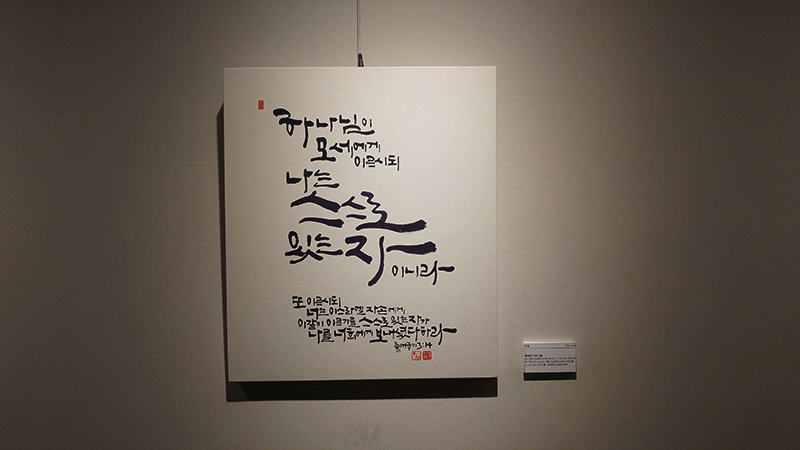 하나님이
모세에게
이르시되
나는
스스로
있는 자
이니라
또 이르시되
너는 이스라엘 자손에게
이같이 이르기를 스스로 있는 자가
나를 너희에게 보내셨다 하라
출애굽기 3:14